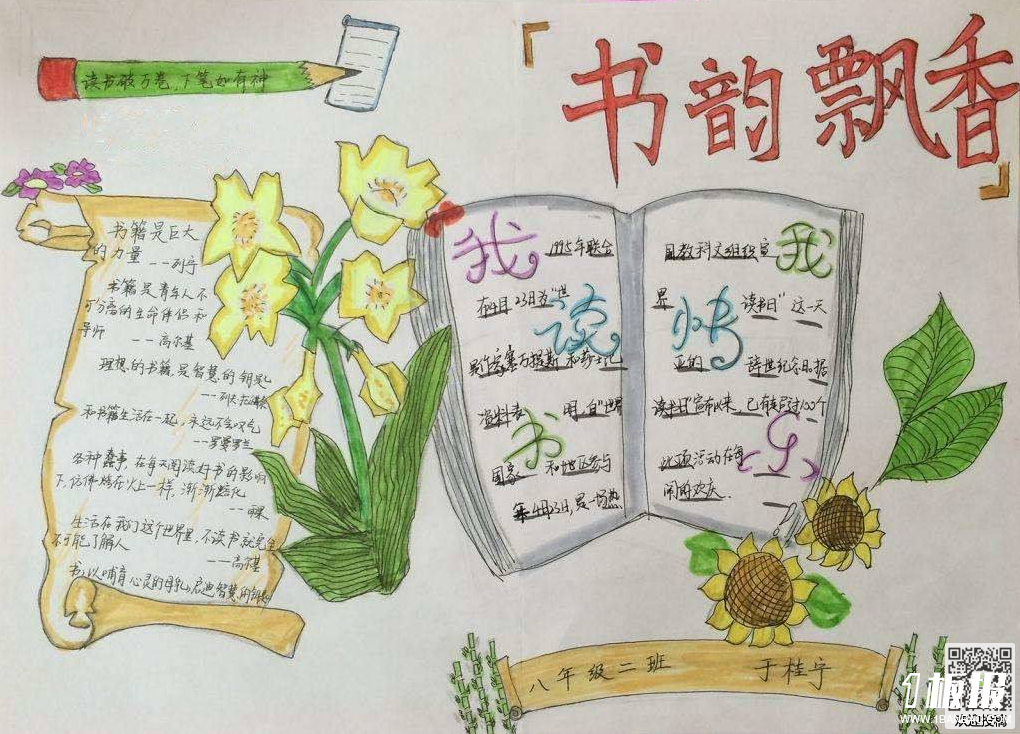 读书破万卷,下笔如有神
书韵飘香
书籍是巨大
的力量 ——列宁
书籍是青年人不
可分离的生命伴侣和
导师 ——高尔基
理想的书籍,是智慧的钥匙
——列夫托
和书籍生活在一起,永远不会叹气
——罗曼罗兰
各种蠢事,在每天阅读好书的影响
下,仿佛烤在火上一样,渐渐熔化
生活在我们这个世界里,不读书就完全
不可能了解人
——高尔基
书以哺育心灵的母乳,启迪智慧的钥匙
我谈书
我快乐
1995年联合
在4月23日为"世
和
资料者 用,自"世界
国家 和地区参与
4月23日,是一场热
国教科文组织宣
界 读书日"这一天
辞世纪念日,据
读书日"宣布以来,已有超过100个
此项活动在每
闹的欢庆.
八年级二班 于桂宁
1板报
WWW.1BANBAO.COM
欢迎投稿